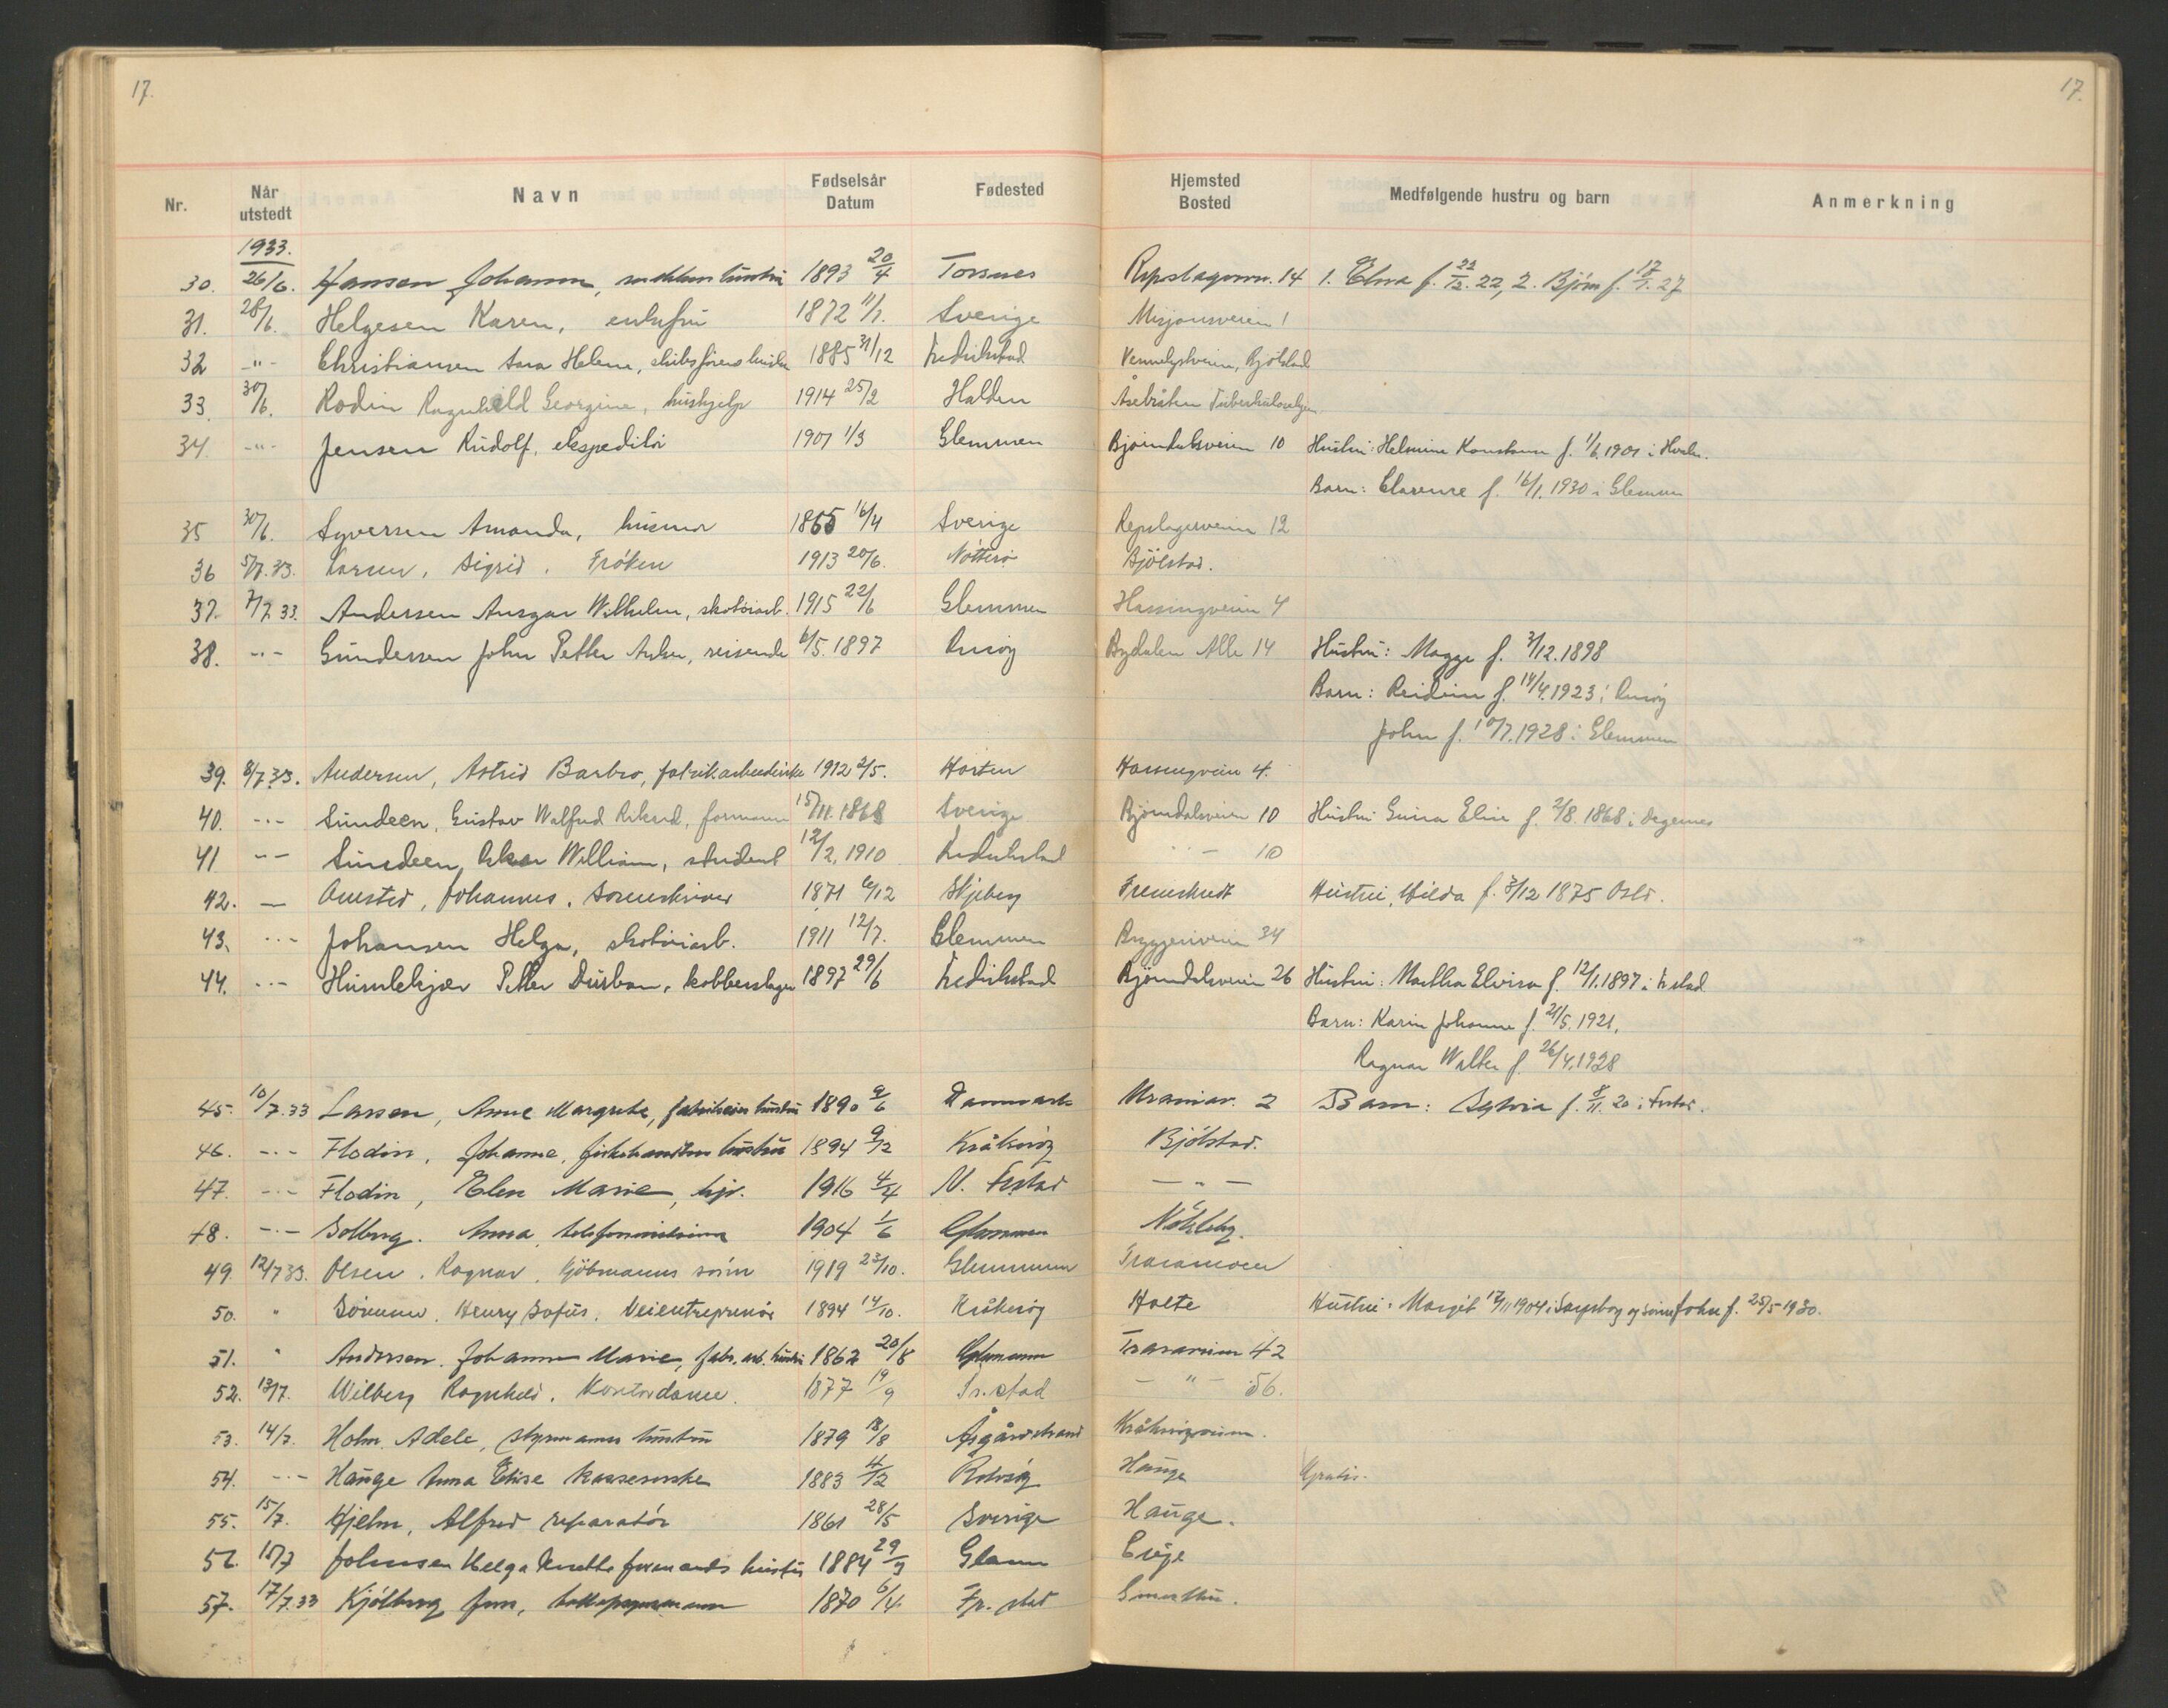 17.
17.
Nr.
Når utstedt
Navn
Fødselsår Datum
Fødested
Hjemsted Bosted
Medfølgende hustru og barn
Anmerkning
1933.
30. 26/6. Hansen Johanne, hustru 1893 20/4 Torsnes 14 1. Elna f. 22, 2. Bjørn f. 17/1. 27
31. 28/6. Helgesen Karen, enkefru 1872 11/1. Sverige Misjonsveien 1
32 -"- Christiansen Helene, skibsførers hustru 1885 31/12 Fredrikstad Bjølstad
33. 30/6. Rodin Ragnhild Georgine, hushjelp 1914 25/2 Halden Åsebråten
34. -"- Jensen Rudolf, ekspeditør 1901 1/3 Glemmen Bjørndalsveien 10 Hustru: Helmine f. 1/6. 1901 i
Barn: Clarence f. 16/1. 1930 i Glemmen
35 30/6. Syversen Amanda, husmor 1865 16/4 Sverige Repslagerveien 12
36 5/7.33. Larsen, Sigrid, Frøken 1913 20/6. Nøtterø Bjølstad.
37. 7/7 33. Andersen Ansgar Wilhelm, skotøiarb. 1915 22/6 Glemmen Hassingveien 4
38. -"- Gundersen John Petter, reisende 6/5. 1897 Onsøy Bydalen Alle 14 Hustru: Magge f. 1898
Barn: Reidun f. 14/4. 1923 i Onsøy
John f. 10/7. 1928 i Glemmen
39. 8/7 33. Andersen, Astrid Barbro, fabrikarbeiderske 1912 2/5. Horten Hassingveien 4.
40. -"- Sundeen, Gustav Walfred Rikard, formann 15/11. 1868 Sverige Bjørndalsveien 10 Hustru Elise f. 2/8. 1868 i Degernes
41 -"- Sundeen, William, student 12/2. 1910 Fredrikstad -"- 10
42. — Onstad, Johannes, Sorenskriver 1871 6/12 Skjeberg Hustru, Hilda f. 3/12 1875 Oslo.
43. -"- Johansen Helga, skotøiarb. 1911 12/7. Glemmen Bryggeriveien 34
44. -"- Humlekjær Petter Durban, kobberslager 1897 29/6 Fredrikstad Bjørndalsveien 26 Hustru: Martha Elvira f. 12/1. 1897 i Fr.stad
Barn: Karin Johanne f. 21/5. 1921,
Ragnar Walter f. 26/4. 1928
45. 10/7.33 Larsen, Anne Margrete, hustru 1890 9/6 Danmark Uraniav. 2 Barn: Sylvia f. 8/11. 20 i Fr.stad.
46. -"- Flodin, Johanne, fiskehandlers hustru 1894 9/12 Kråkerøy Bjølstad.
47. -"- Flodin, Elen Marie, 1916 4/4 N. Fr.stad — " —
48. -"- Solberg. Anna, 1904 1/6 Glemmen Nøkleby.
49. 12/7 33. Olsen, Ragnar, kjøbmanns sønn 1919 23/10. Glemmen Traraveien
50. " Sørensen, Henry Sofus, Veientreprenør 1894 14/10. Kråkerøy Holte Hustru: Margit 1904 i Sarpsborg og sønn John f. 25/5 1930.
51. " Andersen, Johanne Marie, fabr. arb. hustru 1862 20/8 Glemmen Traraveien 42
52. 13/7. Wilberg Ragnhild, Kontordame. 1877 19/9 Fr.stad — " — 56.
53. 14/7. Holm, Adele, styrmanns hustru 1879 18/8 Åsgårdstrand Kråkerøyveien.
54. -"- Hauge Anna Elise kassererske 1883 4/12 Rolvsøy Hauge Gratis.
55. 15/7. Hjelm, Alfred reparatør 1861 28/5 Sverige Hauge.
56. 15/7 Johnsen Helga formands hustru 1884 29/9 Glemm Lisje
57. 17/7.33 Kjølberg Jens, 1870 6/4 Fr. stad